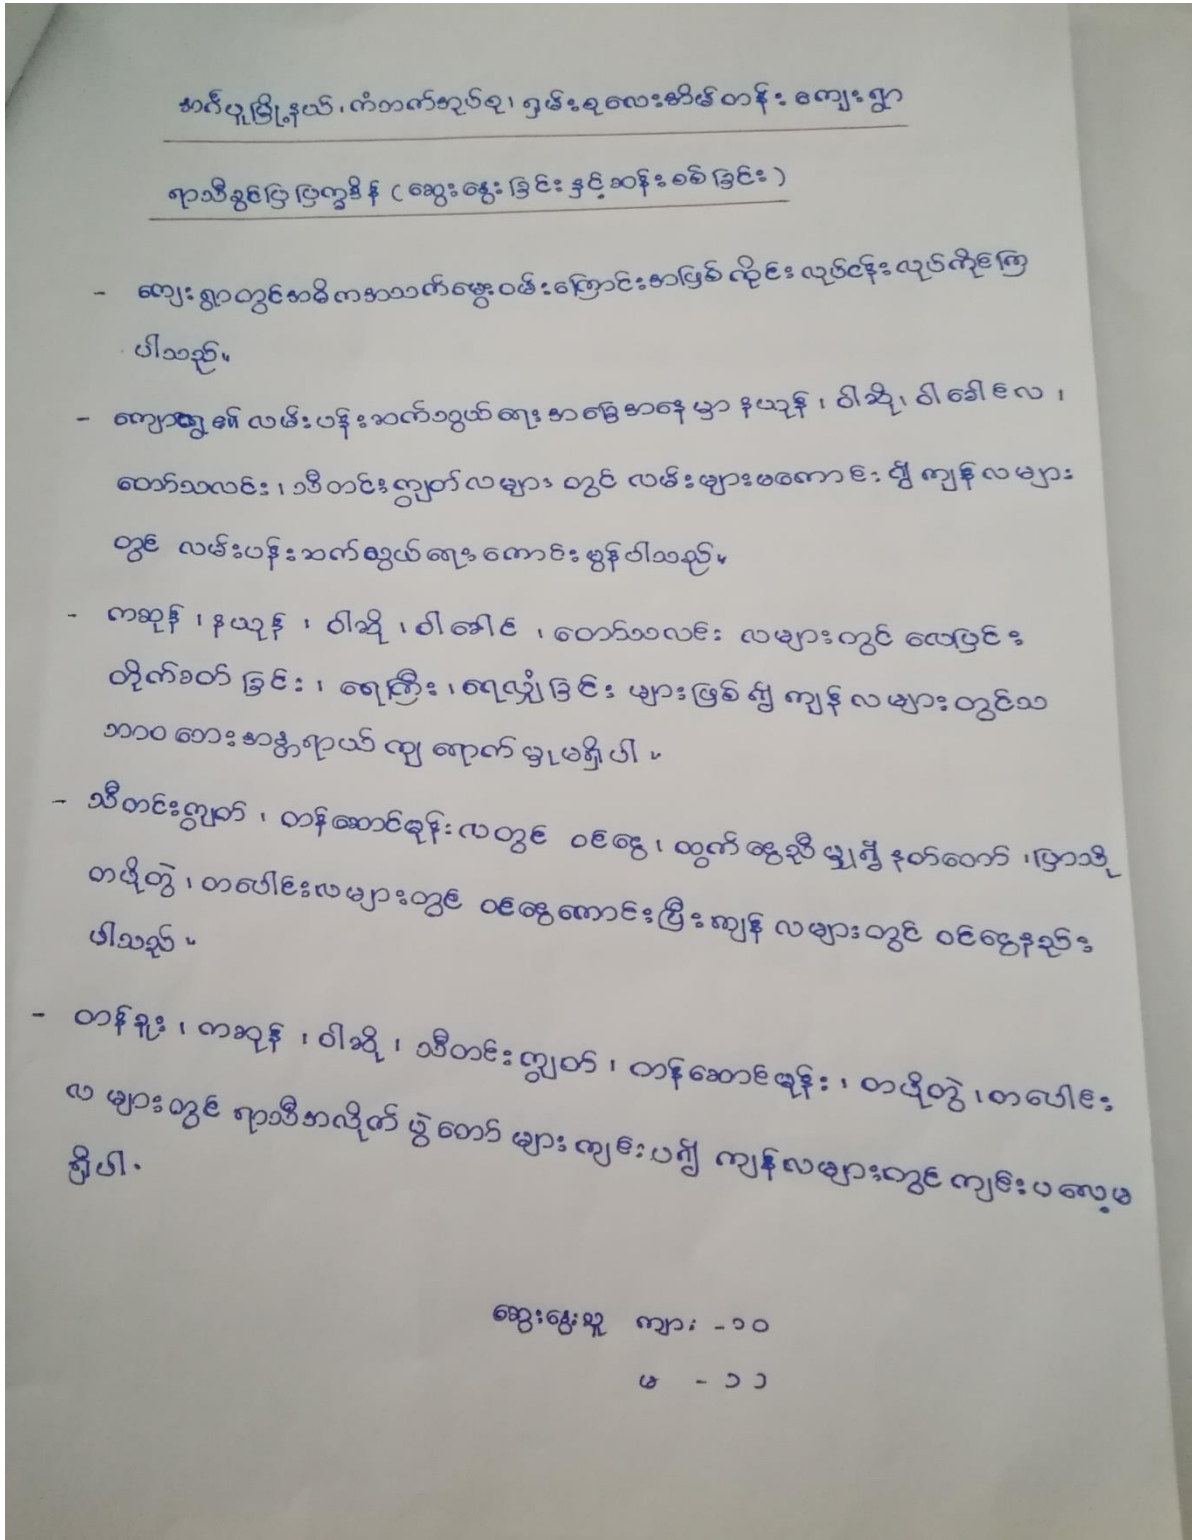 အင်္ဂပူမြို့နယ်၊ ကံဘက်အုပ်စု၊ ရှမ်းစုလေးအိမ်တန်း ကျေးရွာ
ရာသီခွင်ပြ ပြက္ခဒိန် (ဆွေးနွေးခြင်းနှင့်ဆန်းစစ်ခြင်း)
- ကျေးရွာတွင်အဓိကအသက်မွေးဝမ်းကြောင်းအဖြစ် ကိုင်းလုပ်ငန်း လုပ်ကိုင်ကြ
ပါသည်။
- ကျေးရွာ၏ လမ်းပန်းဆက်သွယ်ရေး အခြေအနေမှာ နယုန်၊ ဝါဆို၊ ဝါခေါင်လ၊
တော်သလင်း၊ သီတင်းကျွတ်လများ တွင် လမ်းများမကောင်း၍ ကျန်လများ
တွင် လမ်းပန်းဆက်သွယ်ရေးကောင်းမွန်ပါသည်။
- ကဆုန်၊ နယုန်၊ ဝါဆို၊ ဝါခေါင်၊ တော်သလင်း လများတွင် လေပြင်း
တိုက်ခတ်ခြင်း၊ ရေကြီး၊ ရေလျှံခြင်း များဖြစ်၍ ကျန်လများတွင်သ
ဘာဝဘေးအန္တရာယ် ကျရောက်မှုမရှိပါ။
- သီတင်းကျွတ်၊ တန်ဆောင်မုန်းလတွင် ဝင်ငွေ၊ ထွက်ငွေညီမျှ၍ နတ်တော်၊ ပြာသို
တပို့တွဲ၊ တပေါင်းလများတွင် ဝင်ငွေကောင်းပြီးကျန်လများတွင် ဝင်ငွေနည်း
ပါသည်။
- တန်ခူး၊ ကဆုန်၊ ဝါဆို၊ သီတင်းကျွတ်၊ တန်ဆောင်မုန်း၊ တပို့တွဲ၊ တပေါင်း
လ များတွင် ရာသီအလိုက် ပွဲတော် များကျင်းပ၍ ကျန်လများတွင်ကျင်းပလေ့မ
ရှိပါ။
ဆွေးနွေးသူ ကျား - ၁၀
မ - ၁၁